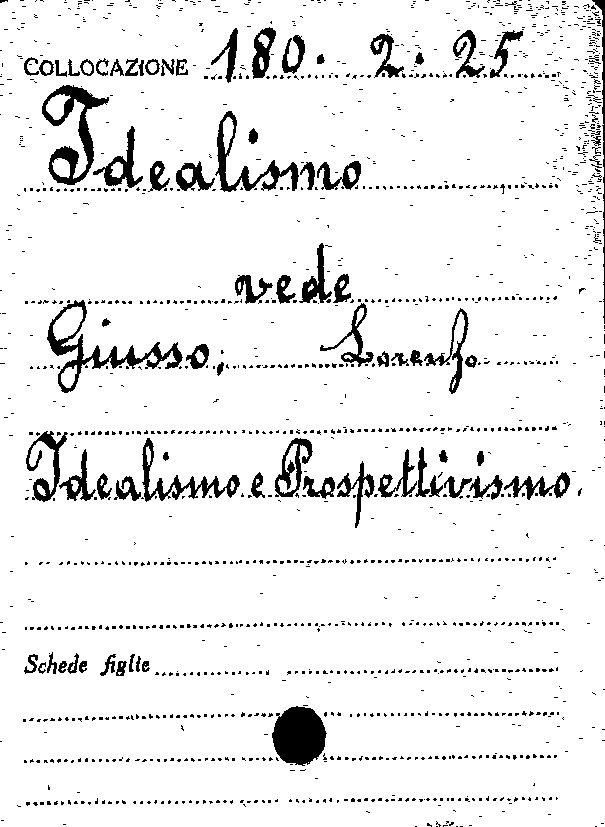 COLLOCAZIONE 180. 2. 25
Idealismo
vede
Giusso, Lorenzo
Idealismo e Prospettivismo.
Schede figlie